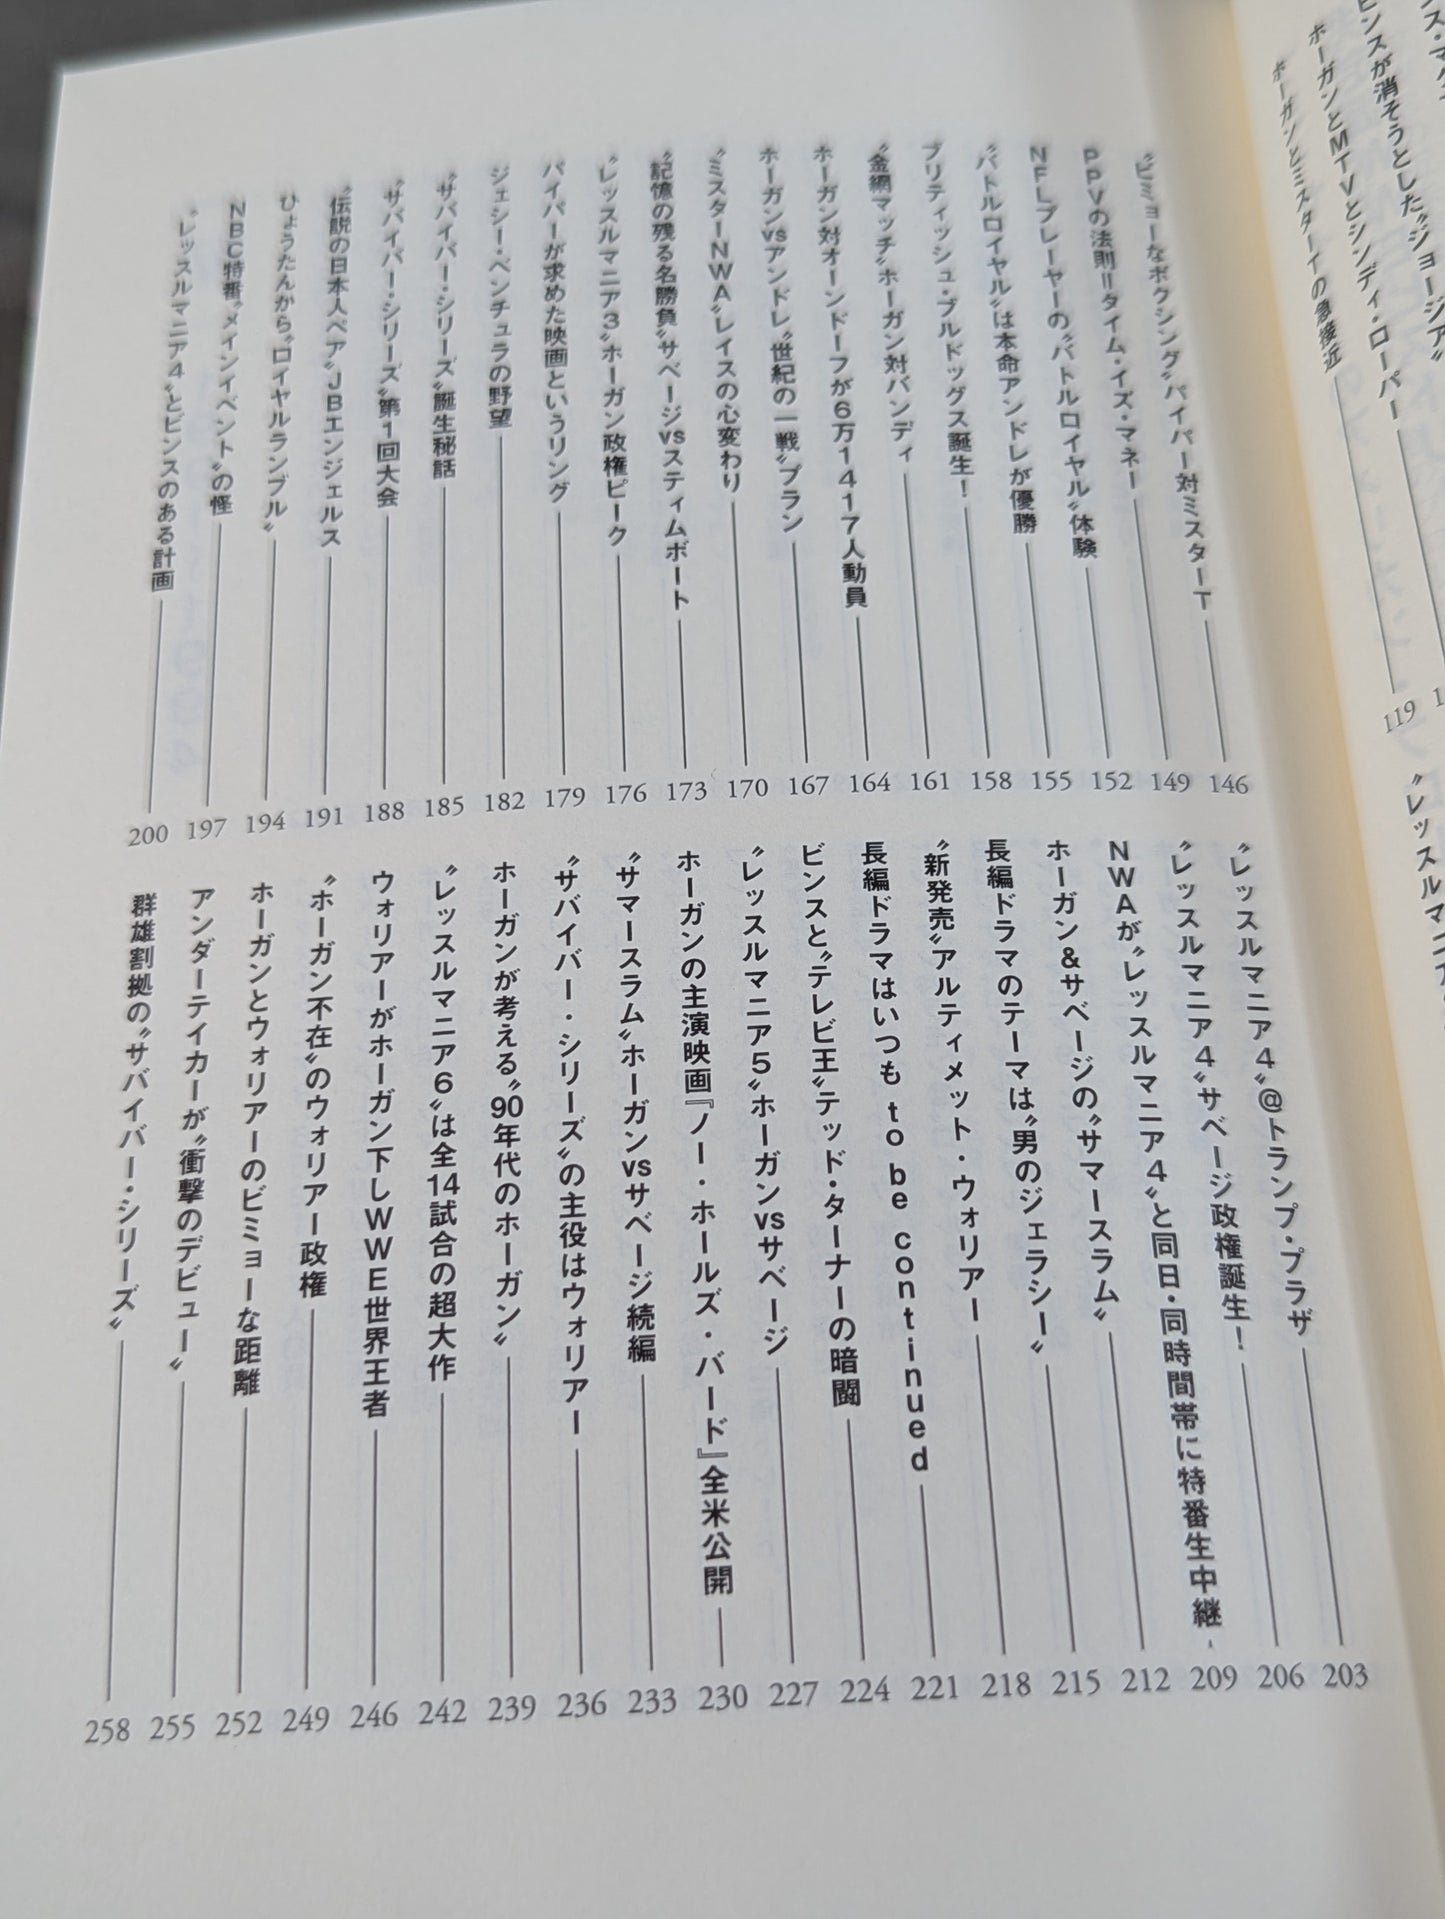 ス・マクマ
ビンスが消そうとした〝ジョージア〟
ホーガンとMTVとシンディ・ローパー 119
ホーガンとミスターTの急接近
〝レッスルマニア
〝ビミョーなボクシング〟パイパー対ミスターT 146
PPVの法則=タイム・イズ・マネー 149
NFLプレーヤーの〝バトルロイヤル〟体験 152
〝バトルロイヤル〟は本命アンドレが優勝 155
ブリティッシュ・ブルドッグス誕生! 158
〝金網マッチ〟ホーガン対バンディ 161
ホーガン対オーンドーフが6万1417人動員 164
ホーガンvsアンドレ〝世紀の一戦〟プラン 167
〝ミスターNWA〟レイスの心変わり 170
〝記憶の残る名勝負〟サベージvsスティムボート 173
〝レッスルマニア3〟ホーガン政権ピーク 176
パイパーが求めた映画というリング 179
ジェシー・ベンチュラの野望 182
〝サバイバー・シリーズ〟誕生秘話 185
〝サバイバー・シリーズ〟第1回大会 188
〝伝説の日本人ペア〟JBエンジェルス 191
ひょうたんから〝ロイヤルランブル〟 194
NBC特番〝メインイベント〟の怪 197
〝レッスルマニア4〟とビンスのある計画 200
〝レッスルマニア4〟@トランプ・プラザ 203
〝レッスルマニア4〟サベージ政権誕生! 206
NWAが〝レッスルマニア4〟と同日・同時間帯に特番生中継 209
ホーガン&サベージの〝サマースラム〟 212
長編ドラマのテーマは〝男のジェラシー〟 215
〝新発売〟アルティメット・ウォリアー 218
長編ドラマはいつも to be continued 221
ビンスと〝テレビ王〟テッド・ターナーの暗闘 224
〝レッスルマニア5〟ホーガンvsサベージ 227
ホーガンの主演映画『ノー・ホールズ・バード』全米公開 230
〝サマースラム〟ホーガンvsサベージ続編 233
〝サバイバー・シリーズ〟の主役はウォリアー 236
ホーガンが考える〝90年代のホーガン〟 239
〝レッスルマニア6〟は全14試合の超大作 242
ウォリアーがホーガン下しWWE世界王者 246
〝ホーガン不在〟のウォリアー政権 249
ホーガンとウォリアーのビミョーな距離 252
アンダーテイカーが〝衝撃のデビュー〟 255
群雄割拠の〝サバイバー・シリーズ〟 258